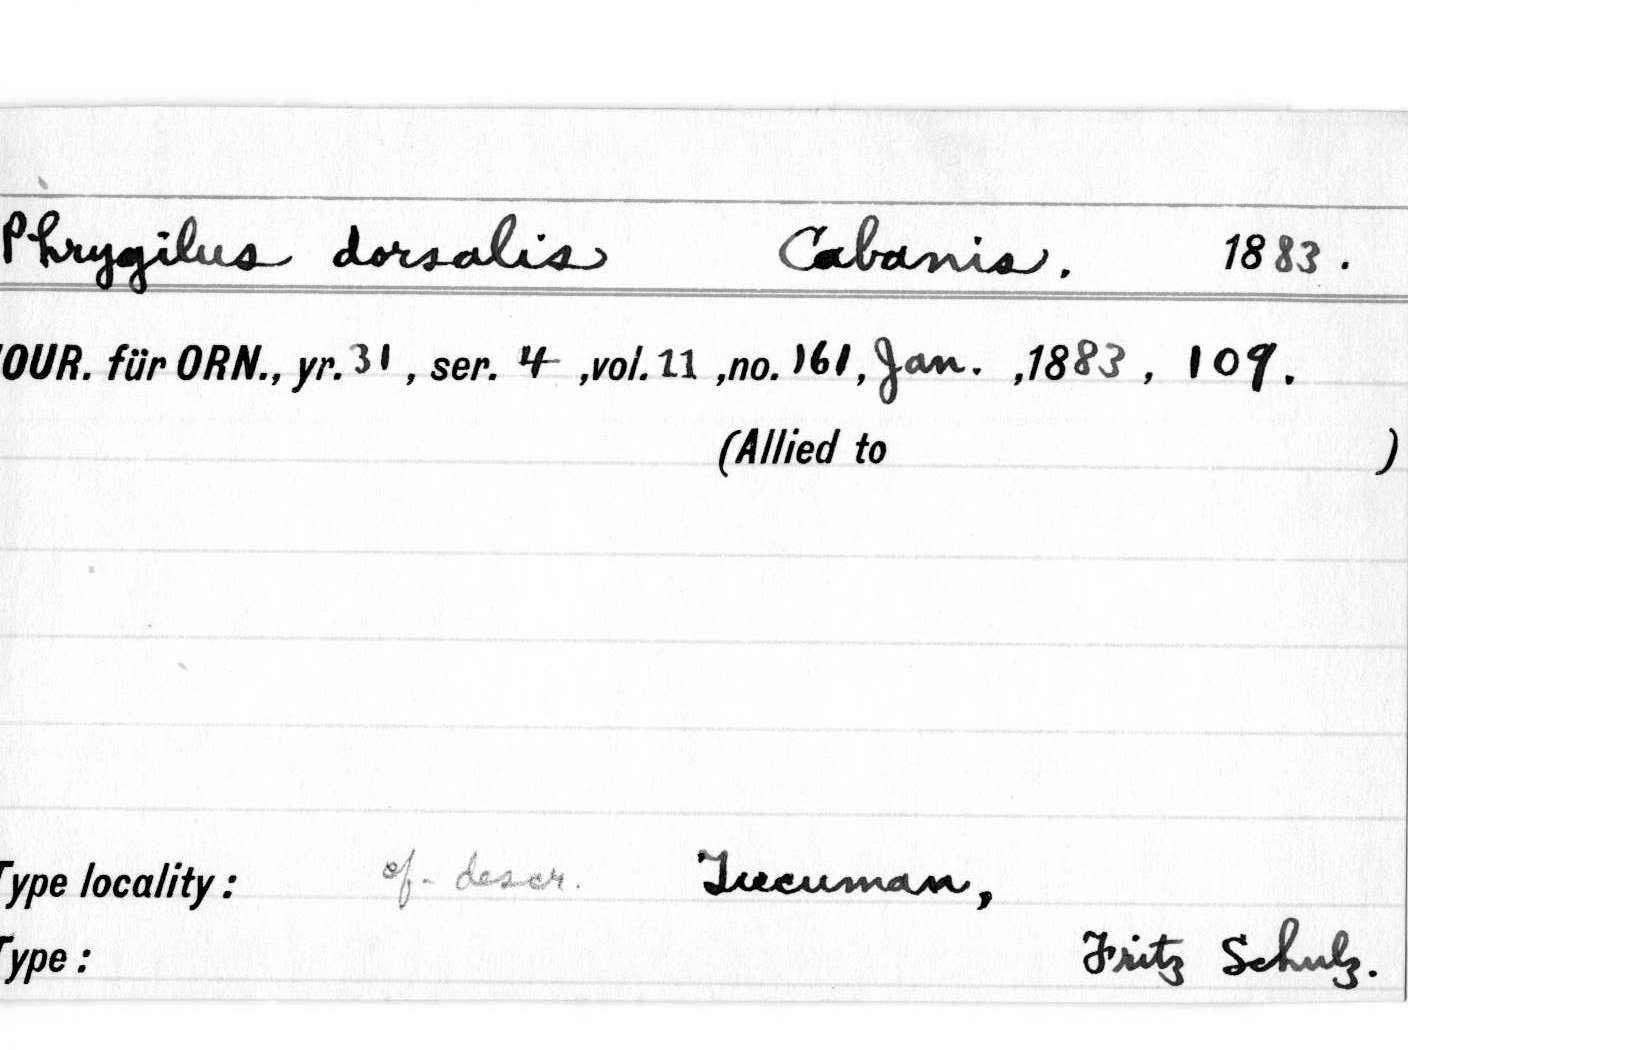 Phrygilus dorsalis Cabanis. 1883.
OUR. für ORN., yr. 31, ser. 4, vol. 11, no. 161, Jan., 1883, 109.
(Allied to )
Type locality: of descr. Tucuman,
Type: Fritz Schulz.